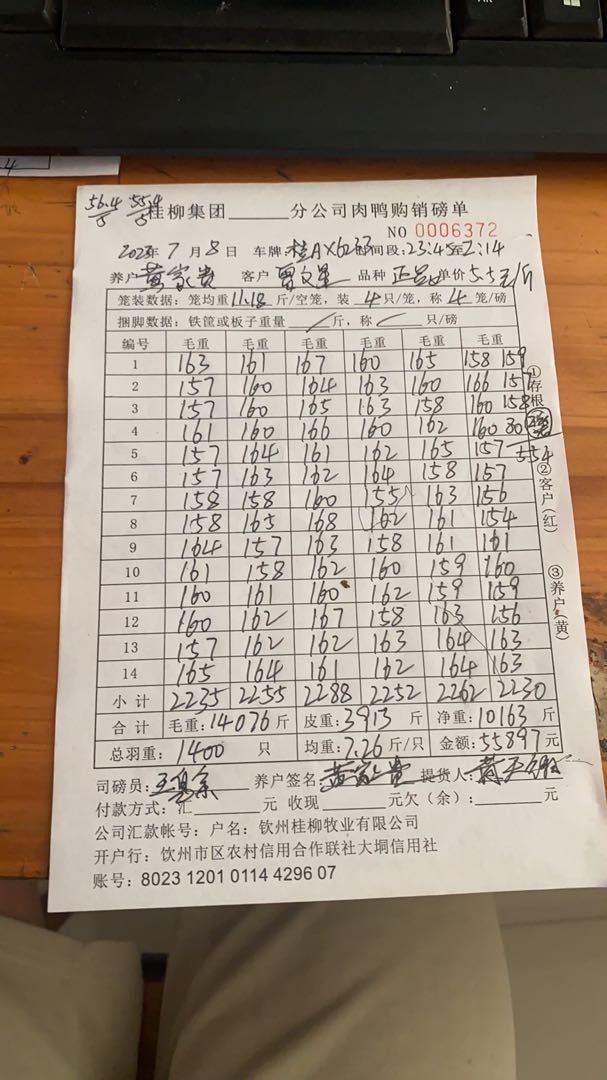 56.4 55.4
5 5
桂柳集团______分公司肉鸭购销磅单
NO 0006372
7月8日 车牌:桂AX6263 时间段:23:45至2:14
养户 黄家贵 客户 品种 单价5.5元/斤
笼装数据:笼均重11.18斤/空笼,装4只/笼,称4笼/磅
捆脚数据:铁筐或板子重量/斤,称/只/磅
编号 毛重 毛重 毛重 毛重 毛重 毛重
1 163 161 167 160 165 158 159
2 157 160 164 163 160 166 157
3 157 160 165 163 158 160 158
4 161 160 166 160 162 160 80
5 157 164 161 162 165 157 554
6 157 163 162 164 158 157
7 158 158 160 155 163 156
8 158 165 168 162 161 154
9 164 157 163 158 161 161
10 161 158 162 160 159 160
11 160 161 160 162 159 159
12 160 162 167 158 163 156
13 157 162 162 163 164 163
14 165 164 161 162 164 163
小计 2235 2255 2288 2252 2262 2230
合计 毛重:14076斤 皮重:3913斤 净重:10163斤
总羽重:1400只 均重:7.26斤/只 金额:55897元
①存根
②客户(红)
③养户(黄)
司磅员: 养户签名:黄家贵 提货人:
付款方式:汇______元 收现______元欠(余):______元
公司汇款帐号:户名:钦州桂柳牧业有限公司
开户行:钦州市区农村信用合作联社大垌信用社
账号:8023 1201 0114 4296 07